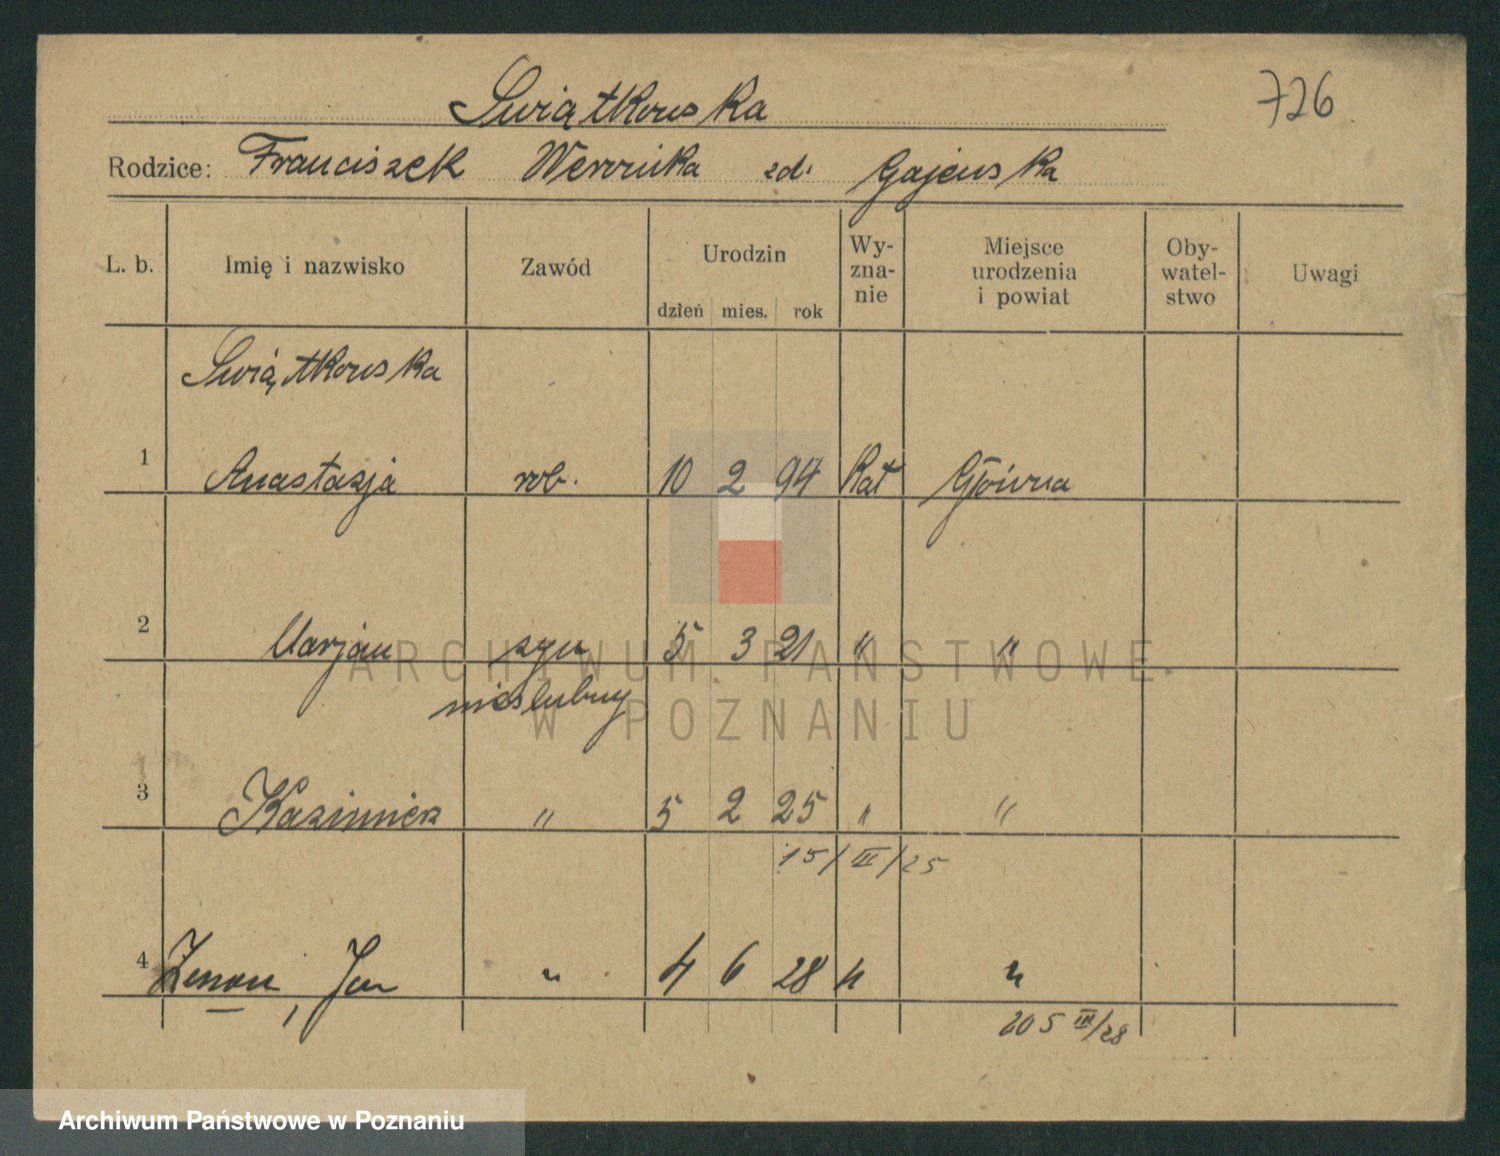 Swiątkowska
726
Rodzice: Franciszek Weronika zd. Gajewska
L. b. Imię i nazwisko Zawód Urodzin dzień mies. rok Wy-zna-nie Miejsce urodzenia i powiat Oby-watel-stwo Uwagi
Swiątkowska
1 Anastazja rob. 10 2 94 Kat Główna
2 Marjan syn 5 3 21 " "
nieslubny
3 Kazimierz " 5 2 25 " "
15/III/25
4 Zenon, Jan " 4 6 28 " "
III/28
ARCHIWUM PAŃSTWOWE
W POZNANIU
Archiwum Państwowe w Poznaniu